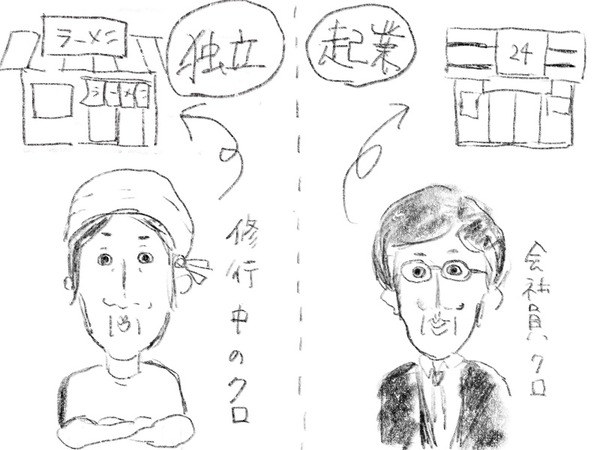 ラーメン
ラーメン
独立
修行中のクロ
起業
24
会社員クロ